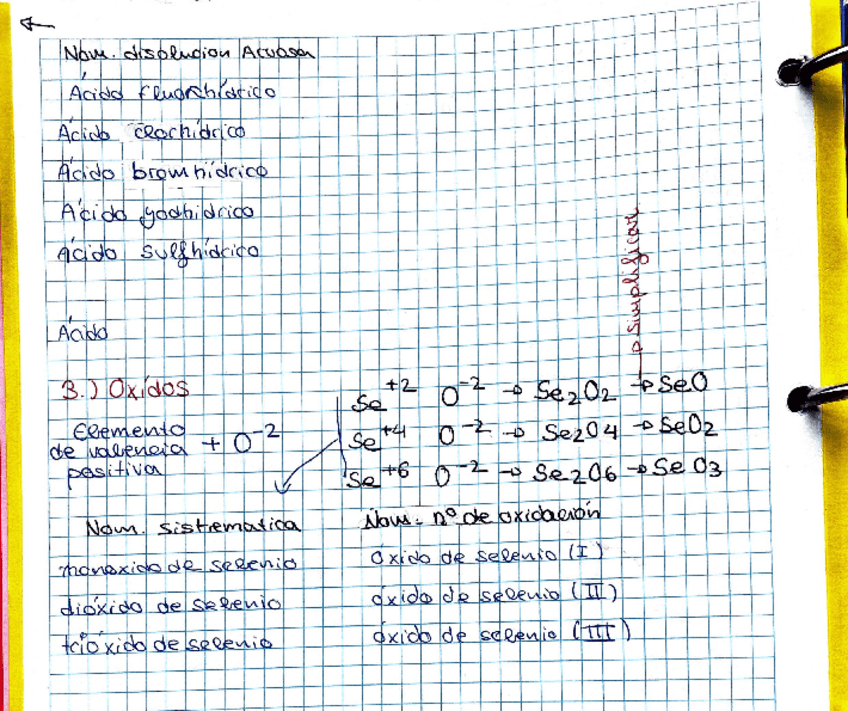 Nom. disolucion Acuosa
Ácido fluorhídrico
Ácido clorhídrico
Ácido bromhídrico
Ácido yodhidrico
Ácido sulfhídrico
Ácido
3.) Oxidos
Elemento de valencia positiva + O⁻²
Se⁺² O⁻² → Se₂O₂ → SeO
→ simplificar
Se⁺⁴ O⁻² → Se₂O₄ → SeO₂
Se⁺⁶ O⁻² → Se₂O₆ → SeO₃
Nom. sistematica
Nom. nº de oxidación
monoxido de selenio
oxido de selenio (I)
dióxido de selenio
óxido de selenio (II)
trióxido de selenio
óxido de selenio (III)